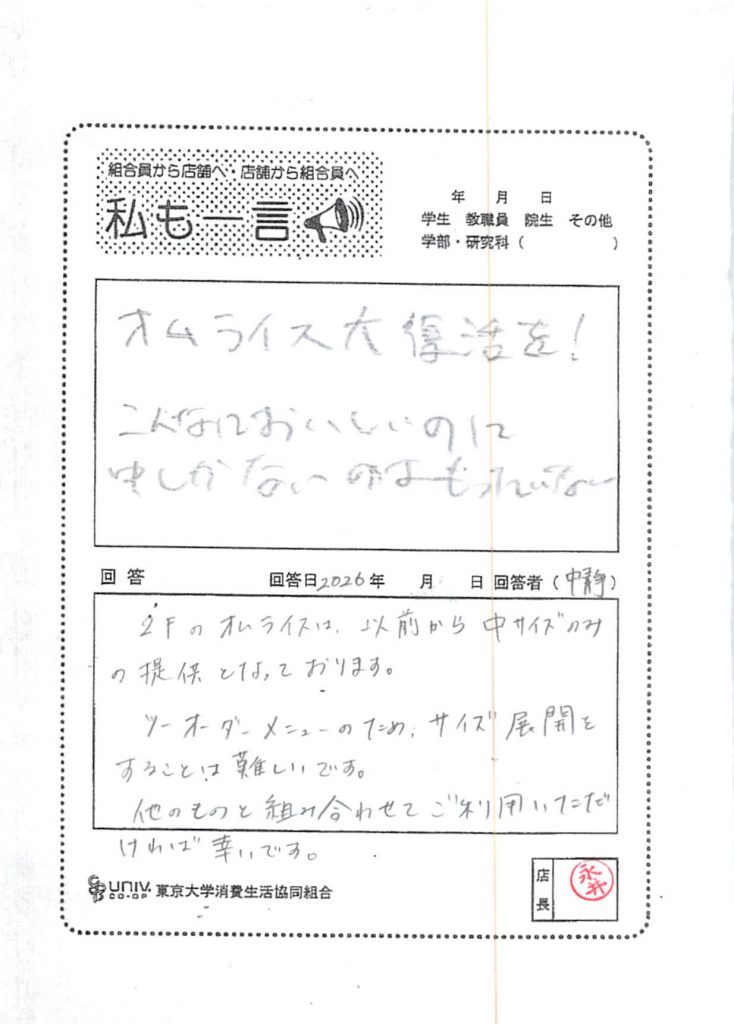 組合員から店舗へ・店舗から組合員へ
私も一言
年 月 日
学生 教職員 院生 その他
学部・研究科( )
オムライス大復活を!
こんなにおいしいのに
中しかないのはもったいない
回答 回答日2026年 月 日 回答者(中静)
2Fのオムライスは、以前から中サイズのみ
の提供となっております。
ツーオーダーメニューのため、サイズ展開を
することは難しいです。
他のものと組み合わせてご利用いただだ
ければ幸いです。
UNIV. CO-OP 東京大学消費生活協同組合
店長 永井